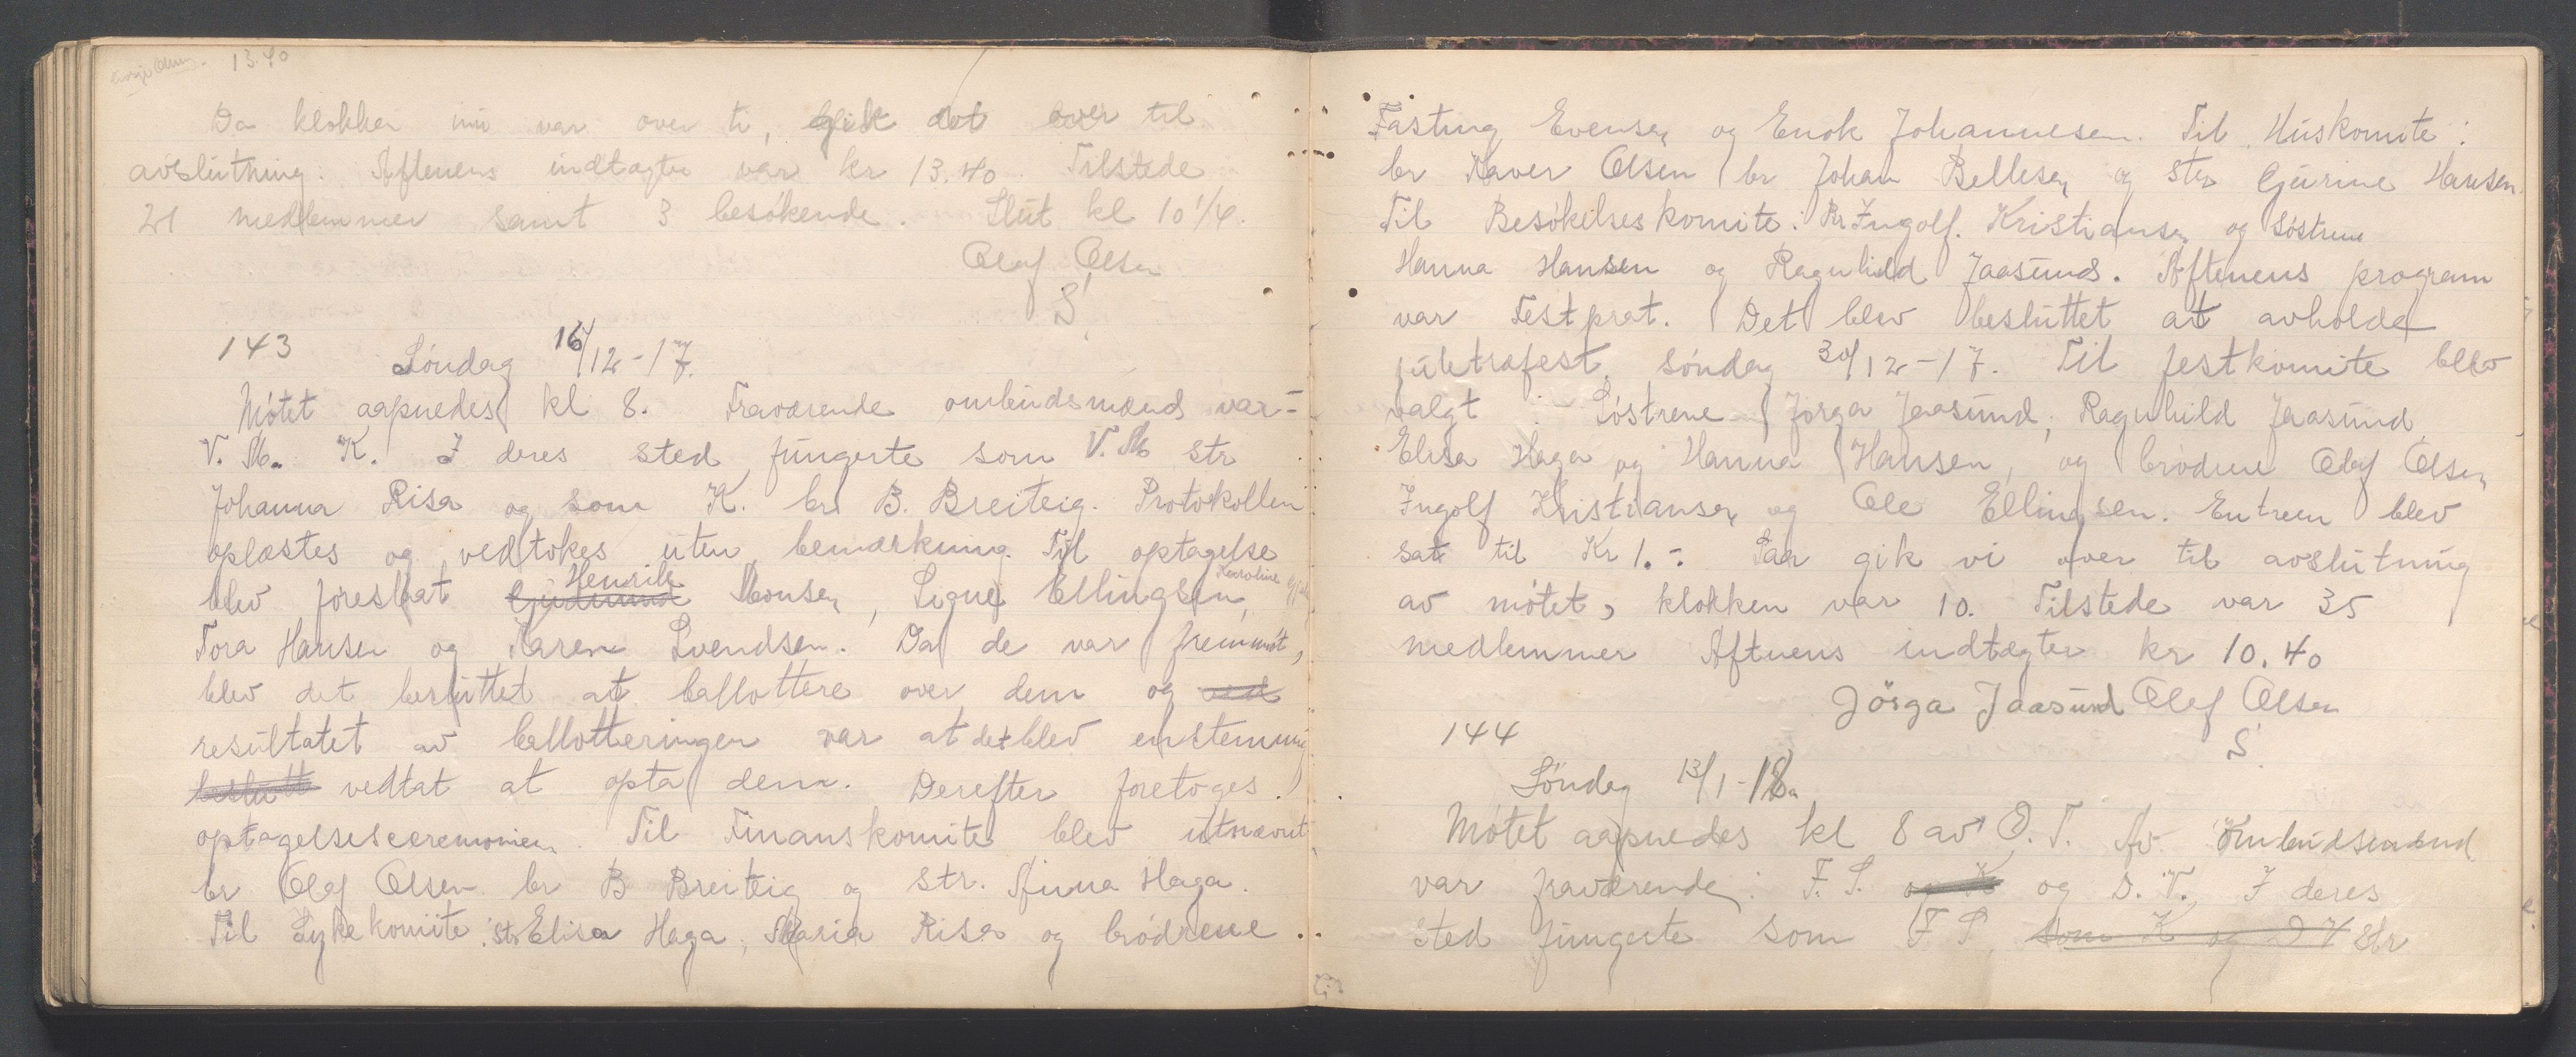 13.40
Da klokken nu var over ti, gik det over til
avslutning. Aftenens indtægter var kr 13.40. Tilstede
21 medlemmer samt 3 besökende. Slut kl 10 1/4.
Olaf Olsen
S.
143
Söndag 16/12-17.
Mötet aapnedes kl 8. Fraværende ombudsmænd var:
V. M. K. I deres sted fungerte som V. M. str
Johanna Risa og som K. br B. Breiteig. Protokollen
oplæstes og vedtokes uten bemærkning. Til optagelse
blev foreslaat Gudmund Henrik Monsen, Signe Ellingsen, Karoline
Tora Hansen og Karen Svendsen. Da de var fremmöt,
blev det besluttet at ballottere over dem og ved
resultatet av ballotteringen var at det blev enstemmig
beslutt vedtat at opta dem. Derefter foretoges
optagelsesceremonien. Til Finanskomite blev utnævnt
br Olaf Olsen br B Breiteig og str. Anna Haga.
Til Sykekomite: str Elisa Haga, Maria Risa og brödrene
Fasting Evensen og Enok Johannesen. Til Huskomite:
br Xaver Olsen br Johan Bellesen og str Gurine Hansen.
Til Besökelseskomite: Br Ingolf. Kristiansen og söstrene
Hanna Hansen og Ragnhild Jaasund. Aftenens program
var Festprat. Det blev besluttet at avholde
juletrafest söndag 30/12-17. Til festkomite blev
valgt Söstrene Jörga Jaasund, Ragnhild Jaasund,
Elisa Haga og Hanna Hansen, og brödrene Olaf Olsen
Ingolf Kristiansen og Ole Ellingsen. Entreen blev
sat til Kr 1.- Saa gik vi over til avslutning
av mötet, klokken var 10. Tilstede var 35
medlemmer Aftnens indtægter kr 10.40
Jörga Jaasund Olaf Olsen
S.
144
Söndag 13/1-18.
Mötet aapnedes kl 8 av O. T. Av Ombudsmænd
var fraværende: F. S. og K og D. V. I deres
sted fungerte som F S. som K og D V str